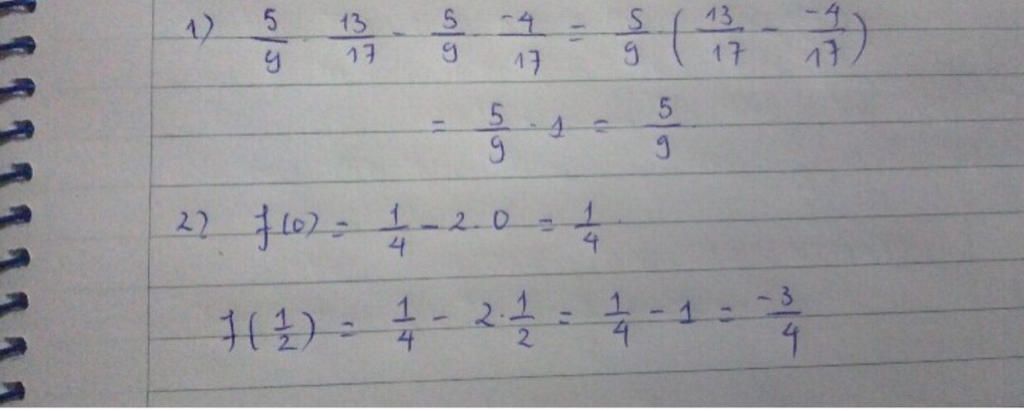 1) 5/9 · 13/17 - 5/9 · -4/17 = 5/9 (13/17 - -4/17)
= 5/9 · 1 = 5/9
2) f(0) = 1/4 - 2.0 = 1/4
f(1/2) = 1/4 - 2.1/2 = 1/4 - 1 = -3/4